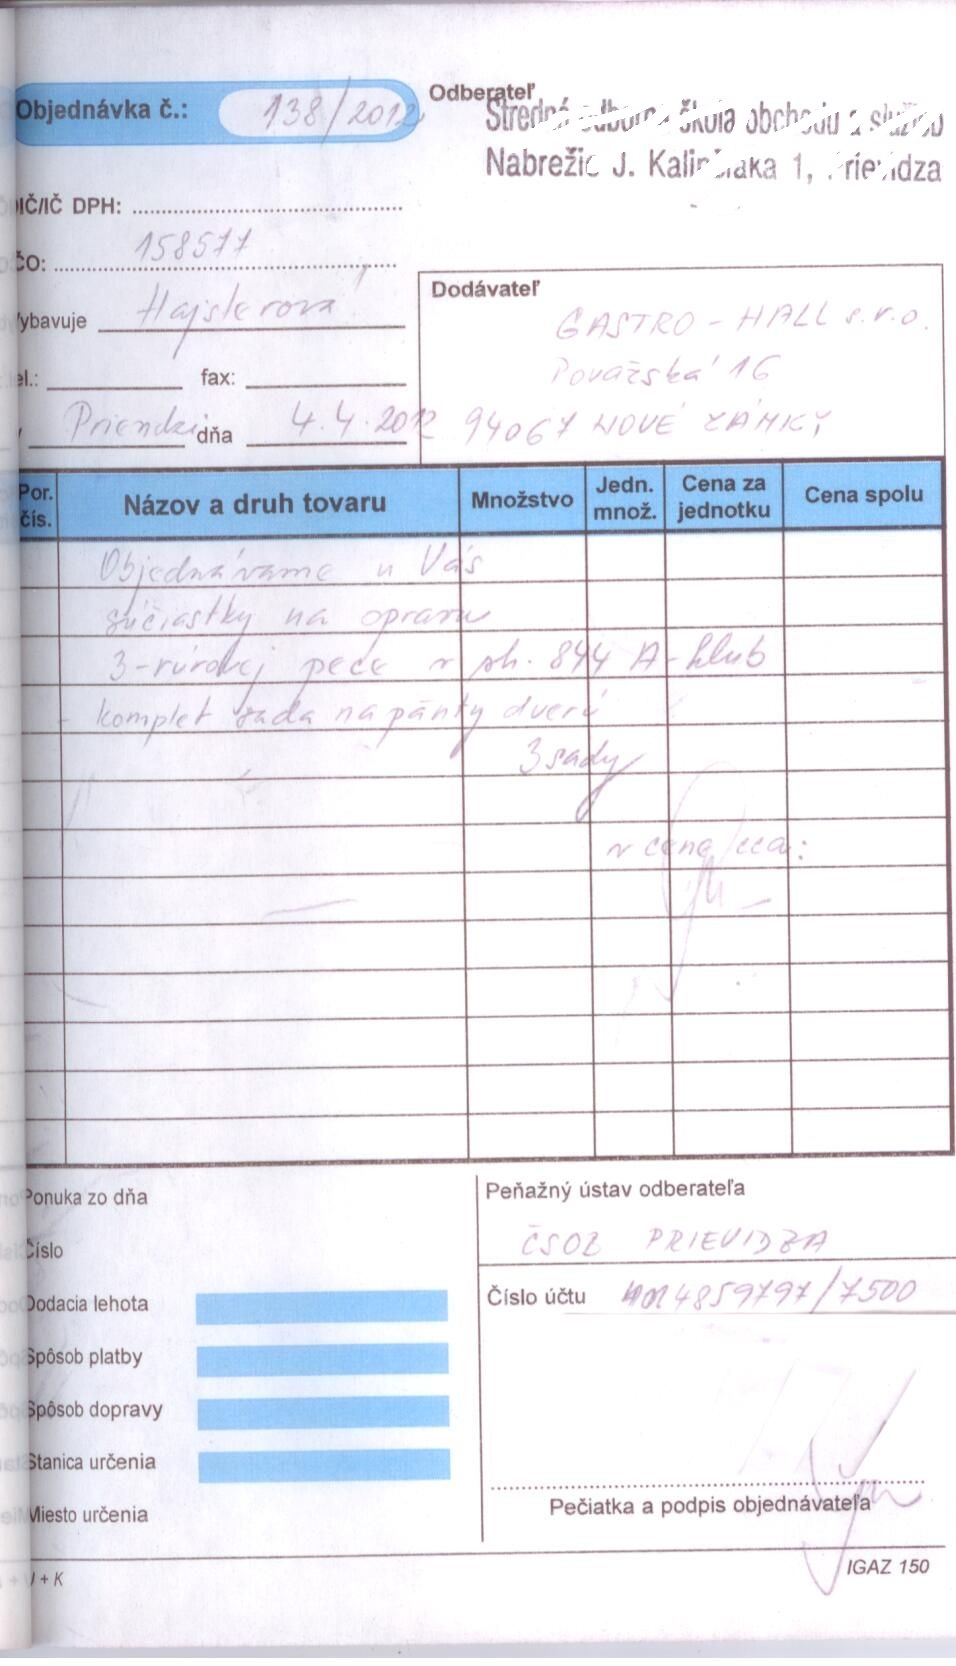 Objednávka č.: 138/2012
Odberateľ
Stredná odborná škola obchodu a služieb
Nabrežie J. Kalinčiaka 1, Prievidza
IČ/IČ DPH:
ČO: 158577
Vybavuje Hajsterová
el.: fax:
V Prievidzi dňa 4.4.2012
Dodávateľ
GASTRO - HALL s.r.o.
Považská 16
94067 NOVÉ ZÁMKY
Por. čís. Názov a druh tovaru Množstvo Jedn. množ. Cena za jednotku Cena spolu
Objednávame u Vás
súčiastky na opravu
3-rúrovej pece v ph. 844 A-klub
- komplet sada na pánty dverí
3 sady
v cene cca:
Ponuka zo dňa
Číslo
Dodacia lehota
Spôsob platby
Spôsob dopravy
Stanica určenia
Miesto určenia
Peňažný ústav odberateľa
ČSOB PRIEVIDZA
Číslo účtu 4859797/7500
Pečiatka a podpis objednávateľa
+ K
IGAZ 150